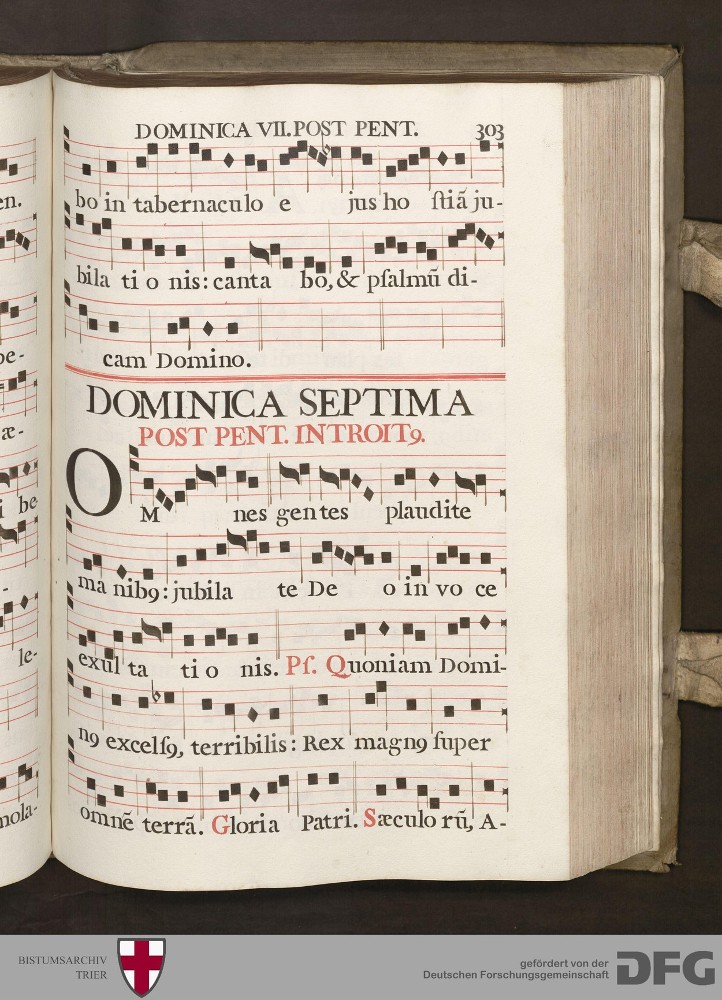 DOMINICA VII. POST PENT. 303
bo in tabernaculo e jus ho ſtiā ju-
bila ti o nis: canta bo, & pſalmū di-
cam Domino.
DOMINICA SEPTIMA
POST PENT. INTROITꝰ.
OM nes gentes plaudite
ma nibꝰ: jubila te De o in vo ce
exul ta ti o nis. Pſ. Quoniam Domi-
nꝰ excelſꝰ, terribilis: Rex magnꝰ ſuper
omnē terrā. Gloria Patri. Sæculo rū, A-
en.
be-
æ-
i be-
le-
mola-
BISTUMSARCHIV
TRIER
gefördert von der
Deutschen Forschungsgemeinschaft
DFG